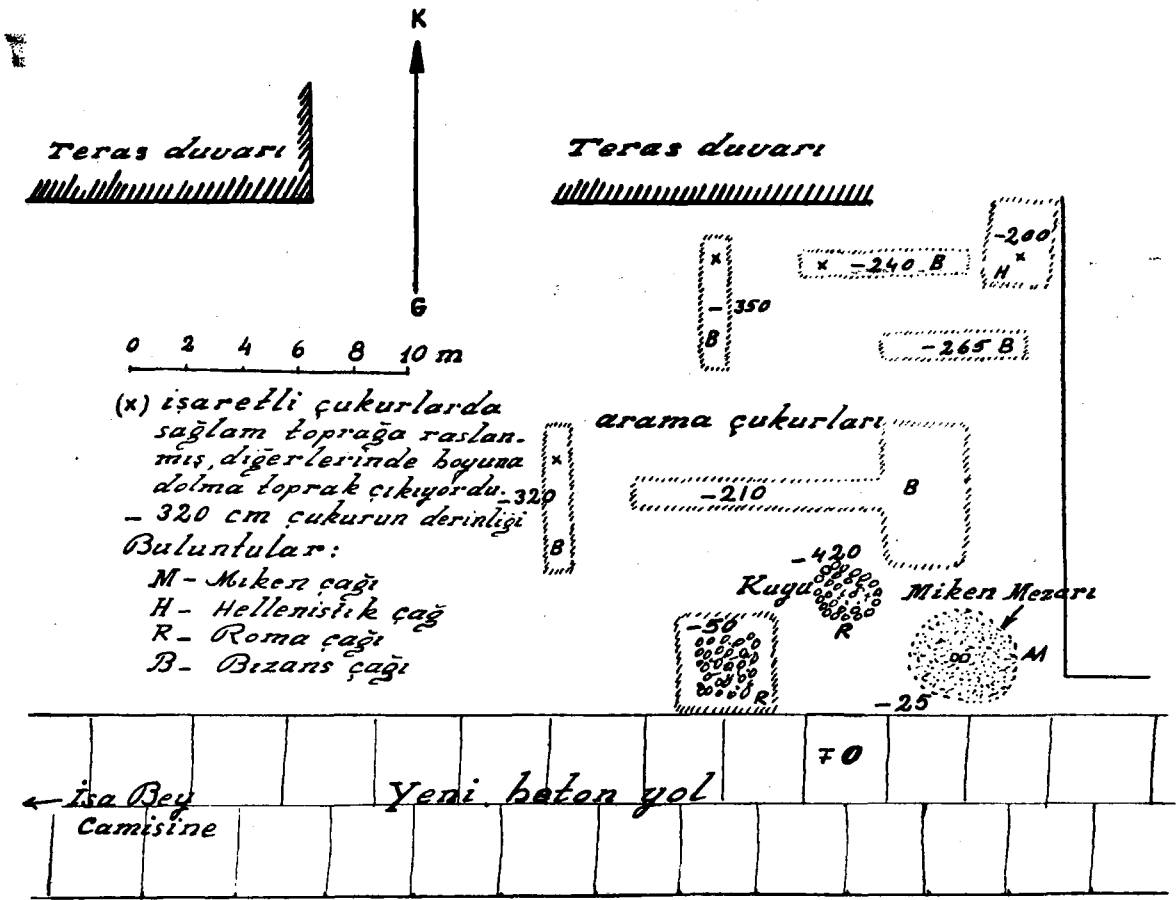 K
Teras duvarı
Teras duvarı
G
0 2 4 6 8 10 m
(x) işaretli çukurlarda
sağlam toprağa raslan-
mış, diğerlerinde boyuna
dolma toprak çıkıyordu.
- 320 cm çukurun derinliği
Buluntular:
M - Miken çağı
H - Hellenistik çağ
R - Roma çağı
B - Bizans çağı
-200
x
H
x -240 B
x
-350
B
-265 B
arama çukurları
x
-320
B
-210
B
-420
Kuyu
R
Miken Mezarı
M
-25
-50
R
∓0
Yeni beton yol
← İsa Bey
Camisine